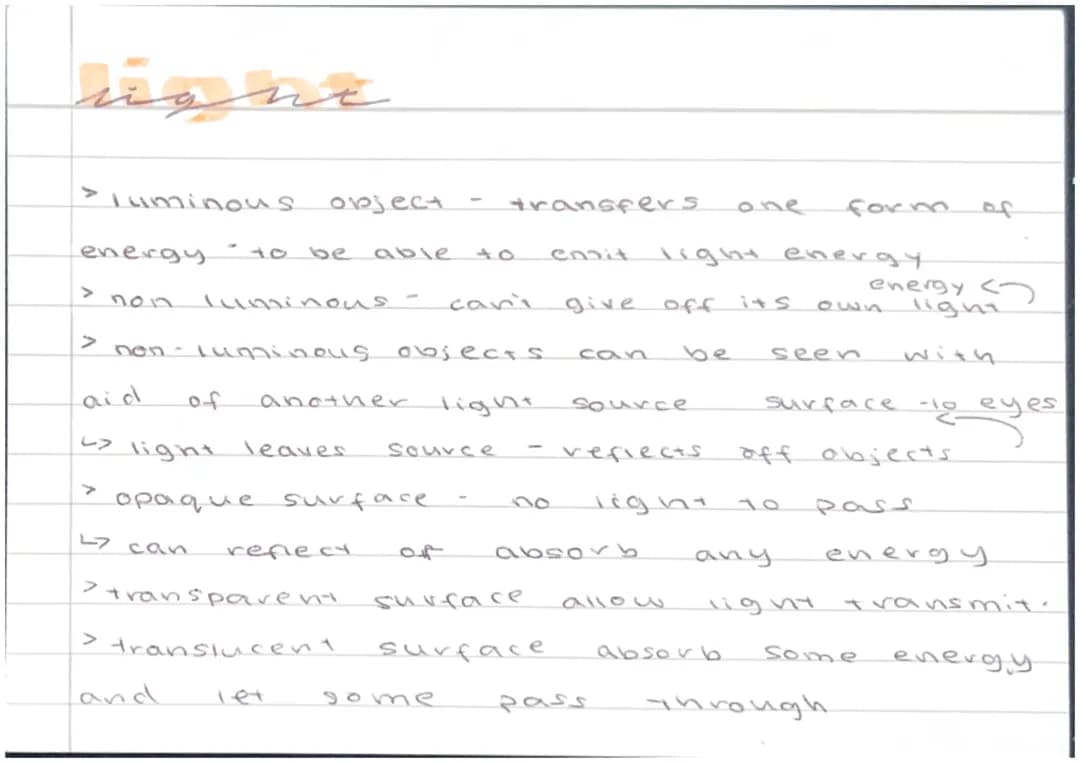 light
> luminous object - transfers one form of
energy to be able to emit light energy
energy
> non luminous - can't give off its own light
> non-luminous objects can be seen with
aid of another light source surface to eyes
↳ light leaves source - reflects off objects
> opaque surface - no light to pass
↳ can reflect or absorb any energy
> transparent surface allow light transmit.
> translucent surface absorb some energy
and let some pass through